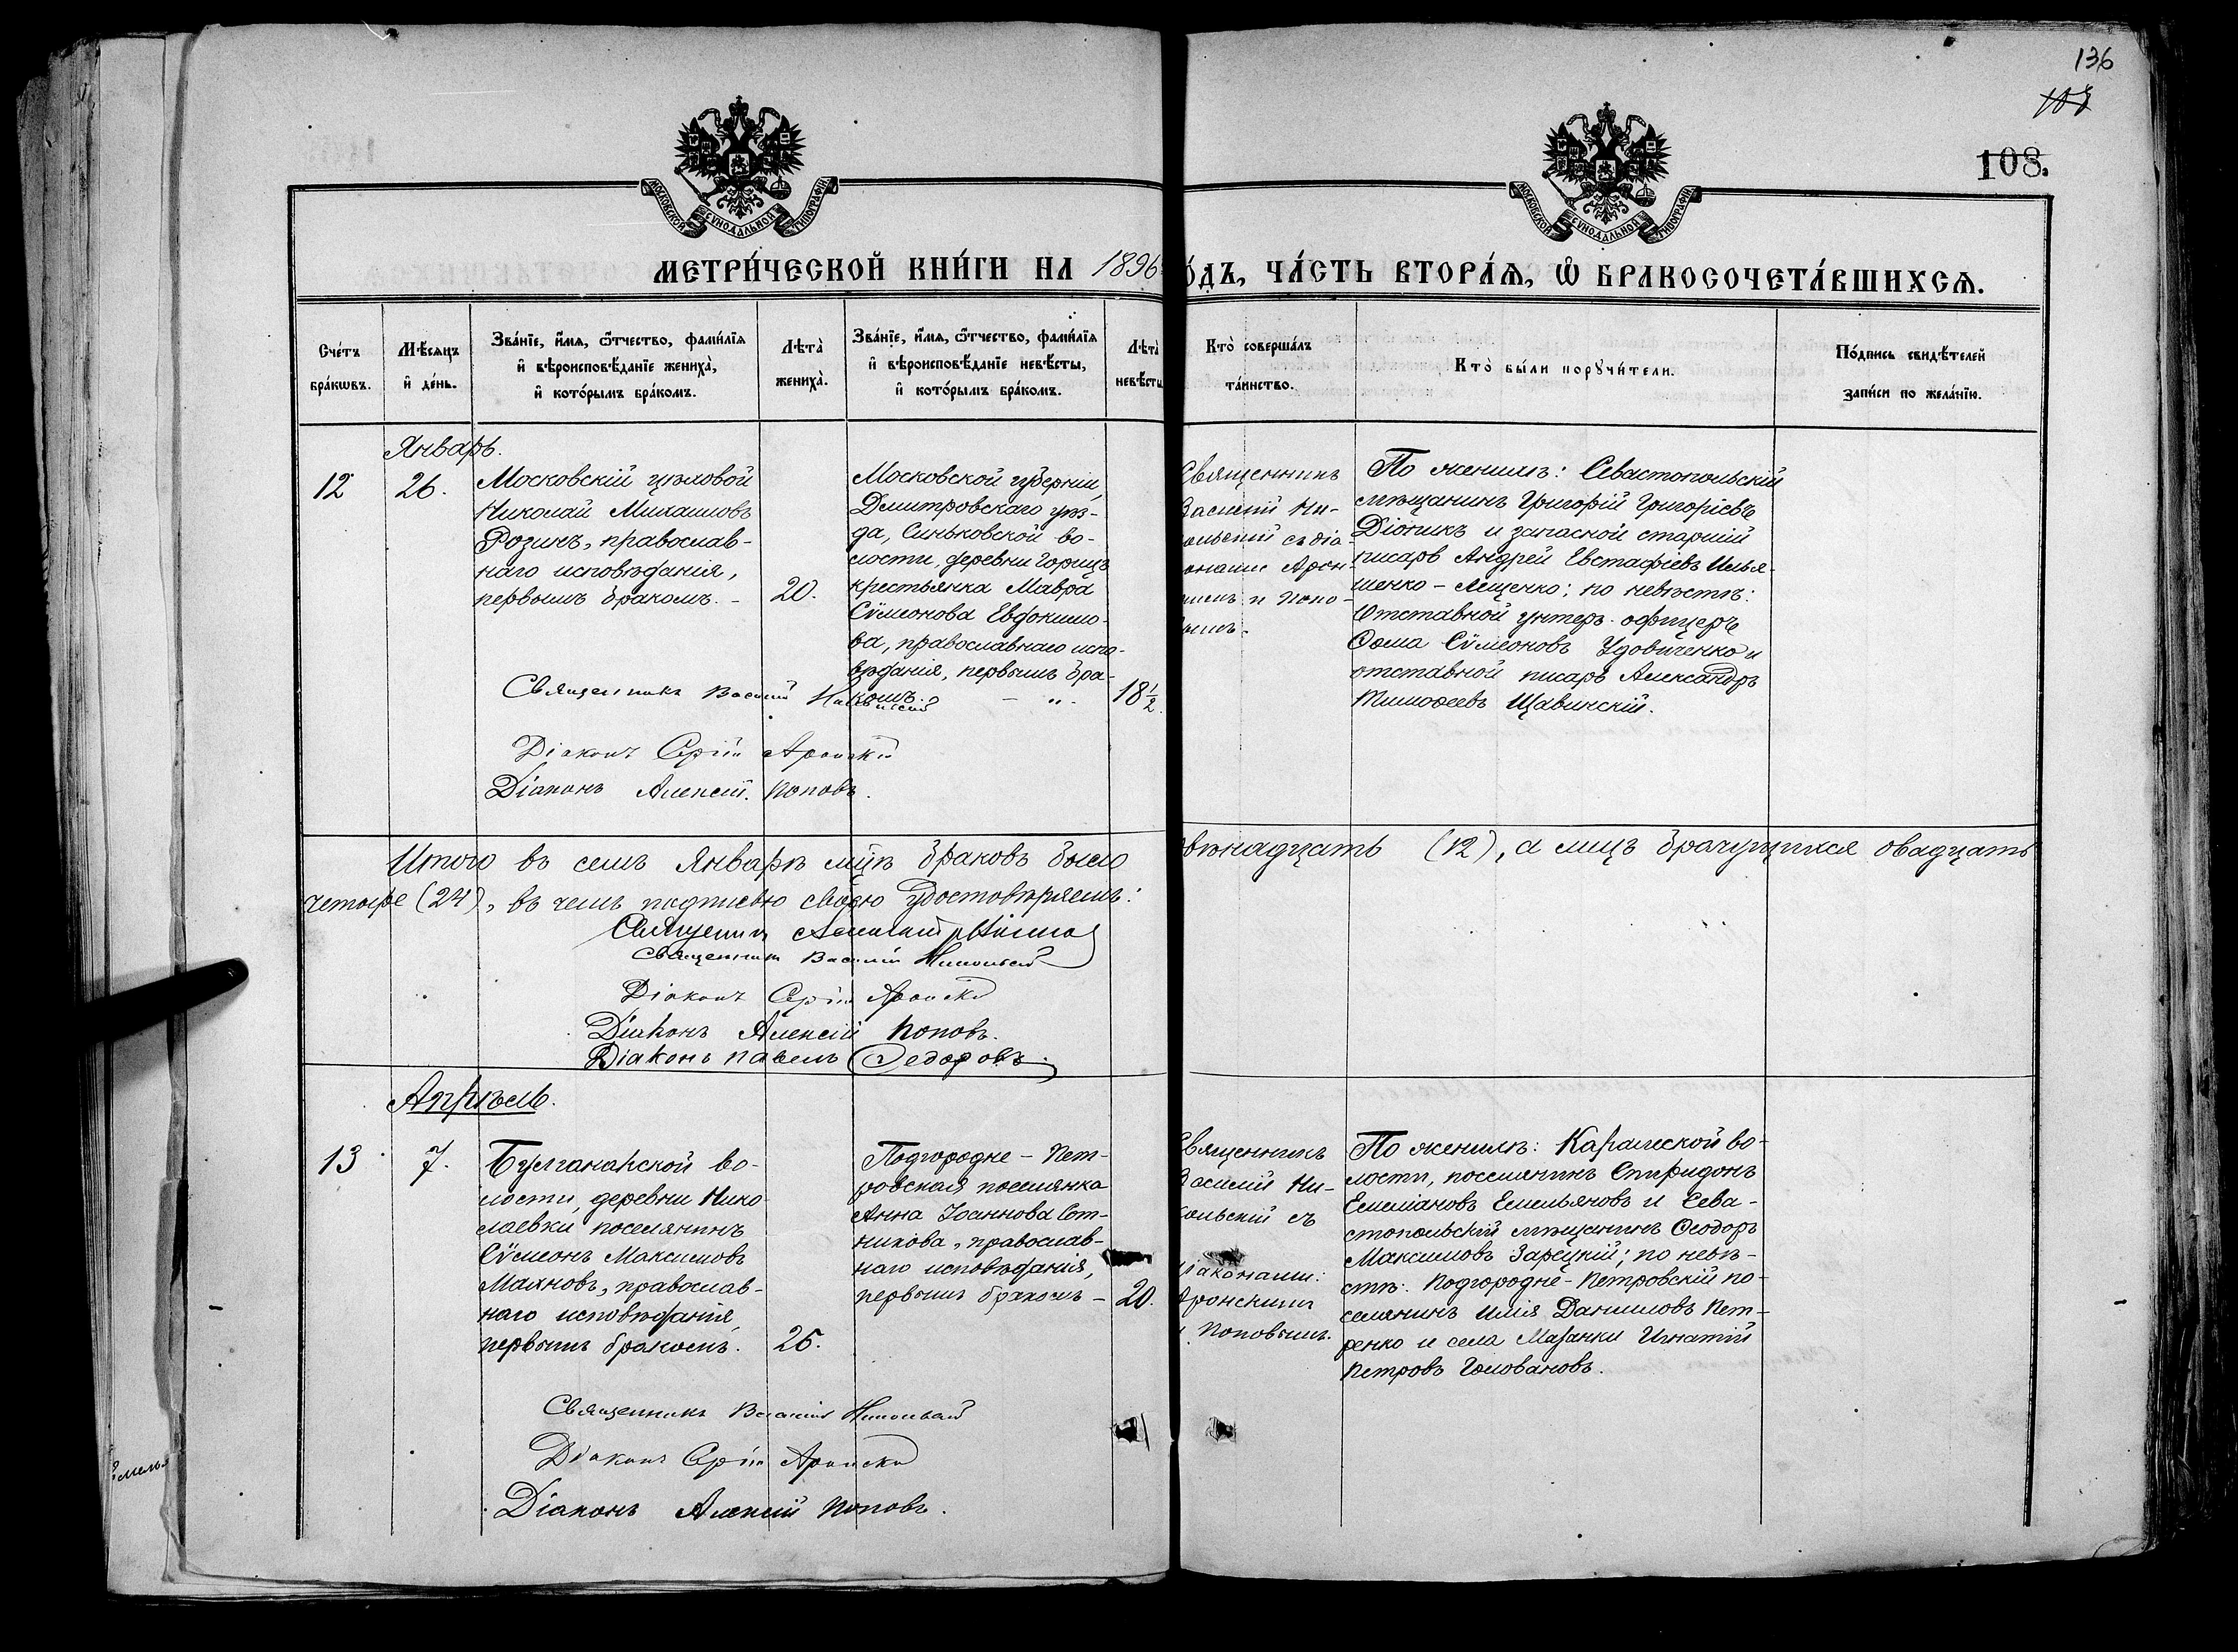 136
108.
МОСКОВСКОЙ СѴНОДАЛЬНОЙ ТИПОГРАФІИ
МОСКОВСКОЙ СѴНОДАЛЬНОЙ ТИПОГРАФІИ
МЕТРИ́ЧЕСКОЙ КНИ́ГИ НА 1896
О́ДЪ, ЧА́СТЬ ВТОРА́Ѧ, Ѽ БРАКОСОЧЕТА́ВШИХСѦ.
Сче́тъ
бра́кѡвъ.
Мѣ́сяцъ
и҆ де́нь.
Зва́нїе, и҆́мѧ, ѻ҆́тчество, фами́лїѧ
и҆ вѣроисповѣ́данїе жениха̀,
и҆ кото́рымъ бра́комъ.
Лѣта̀
жениха̀.
Зва́нїе, и҆́мѧ, ѻ҆́тчество, фами́лїѧ
и҆ вѣроисповѣ́данїе невѣ́сты,
и҆ кото́рымъ бра́комъ.
Лѣта̀
невѣ́сты
Кто̀ соверша́лъ
та́инство.
Кто̀ бы́ли порꙋчи́тели.
По́дпись свидѣ́телей
за́писи по жела́нїю.
Январь.
12
26.
Московскій цѣховой
Николай Михаиловъ
Розинъ, православ-
наго исповѣданія,
первымъ бракомъ. -
20.
Московской губерніи,
Дмитровскаго уѣз-
да, Синьковской во-
лости, деревни Горицъ
крестьянка Мавра
Сѵмеонова Евдокимо-
ва, православнаго испо-
вѣданія, первымъ бра-
комъ. - „ -
18 1/2.
Священникъ
Василій Ни-
ольскій съ діа-
онами Арон
имъ и Попо-
вымъ.
По женихѣ: Севастопольскій
мѣщанинъ Григорій Григоріевъ
Діоникъ и запасной старшій
писарь Андрей Евстафіевъ Илья-
шенко - Лещенко; по невѣстѣ:
Отставной унтеръ-офицеръ
Ѳома Сѵмеоновъ Удовиченко и
отставной писарь Александръ
Тимоѳеевъ Щавинскій.
Священникъ Василій Никольскій
Діаконъ Сергій Аронскій
Діаконъ Алексій Поповъ.
Итого въ семъ Январѣ мѣцѣ браковъ было
двѣнадцать (12), а лицъ брачущихся двадцать
четыре (24), въ чемъ подписью своею удостовѣряемъ:
Священникъ
Священникъ Василій Никольскій
Діаконъ Сергій Аронскій
Діаконъ Алексій Поповъ.
Діаконъ Павелъ Ѳедоровъ.
Апрѣль.
13
7.
Булганакской во-
лости, деревни Нико-
лаевки поселянинъ
Сѵмеонъ Максимовъ
Махновъ, православ-
наго исповѣданія,
первымъ бракомъ.
25.
Подгородне - Пет-
ровская поселянка
Анна Іоаннова Сот-
никова, православ-
наго исповѣданія,
первымъ бракомъ -
20.
Священникъ
Василій Ни-
кольскій съ
діаконами:
Аронскимъ
и Поповымъ.
По женихѣ: Каралеской во-
лости, поселянинъ Спиридонъ
Емеліановъ Емельяновъ и Сева-
стопольскій мѣщанинъ Ѳеодоръ
Максимовъ Зарецкій; по невѣ-
стѣ: Подгородне-Петровскій по-
селянинъ Илія Даниловъ Пет-
ренко и села Мазанки Игнатій
Петровъ Головановъ.
Священникъ Василій Никольскій
Діаконъ Сергій Аронскій
Діаконъ Алексій Поповъ.